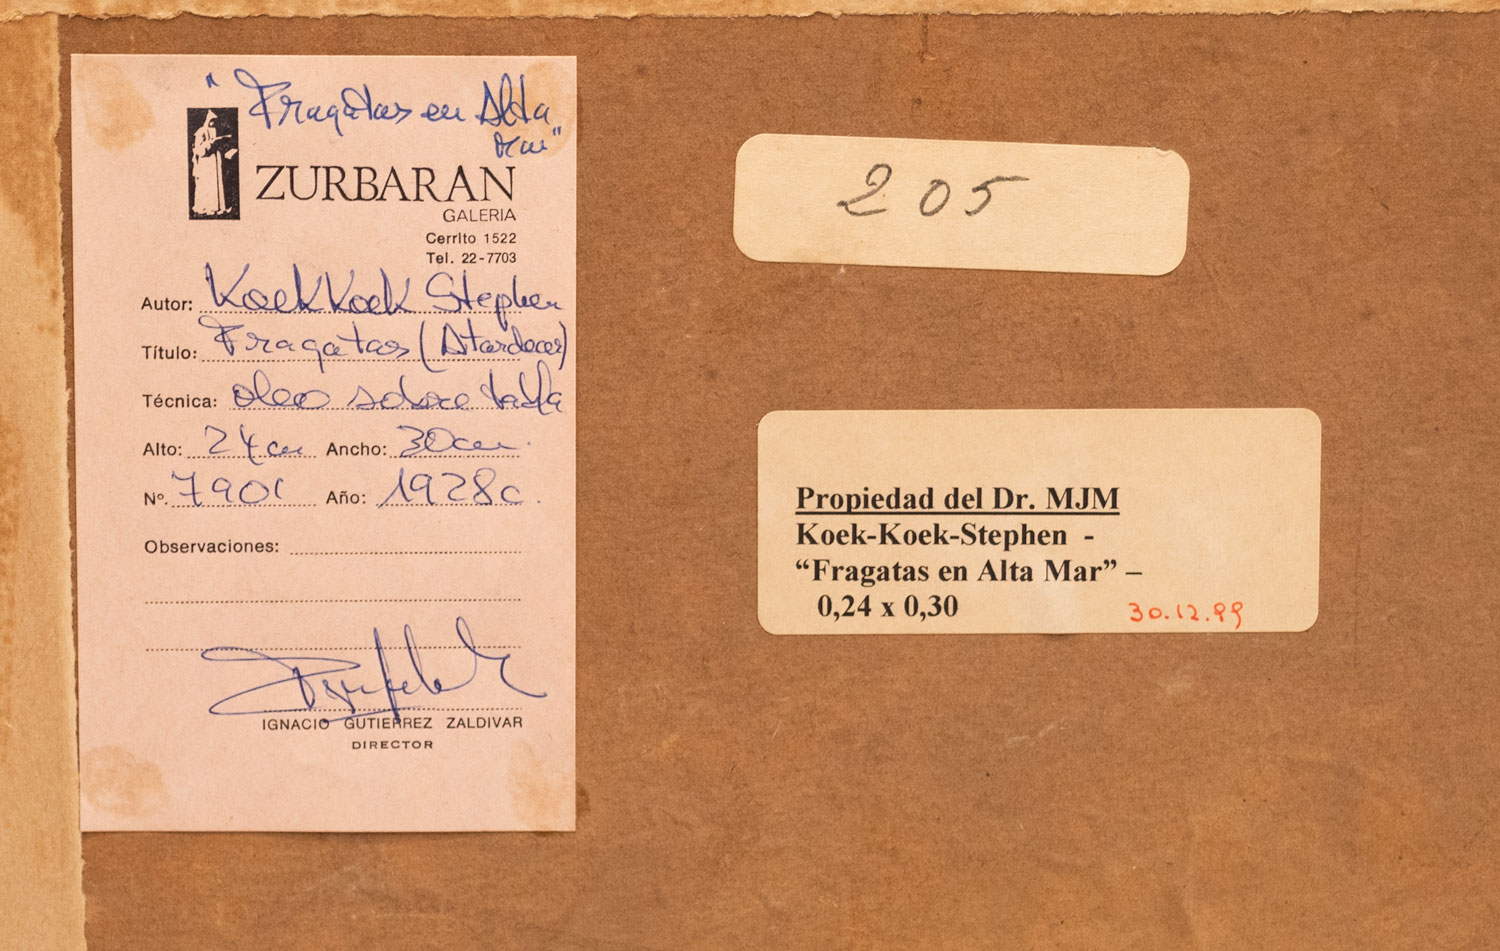 "Fragatas en Alta
Mar"
ZURBARAN
GALERIA
Cerrito 1522
Tel. 22-7703
Autor: KoekKoek Stephen
Título: Fragatas (Atardecer)
Técnica: oleo sobre tabla
Alto: 24 cm Ancho: 30 cm.
Nº. 7901 Año: 1928c.
Observaciones:
IGNACIO GUTIERREZ ZALDIVAR
DIRECTOR
205
Propiedad del Dr. MJM
Koek-Koek-Stephen -
“Fragatas en Alta Mar” –
0,24 x 0,30 30.12.99